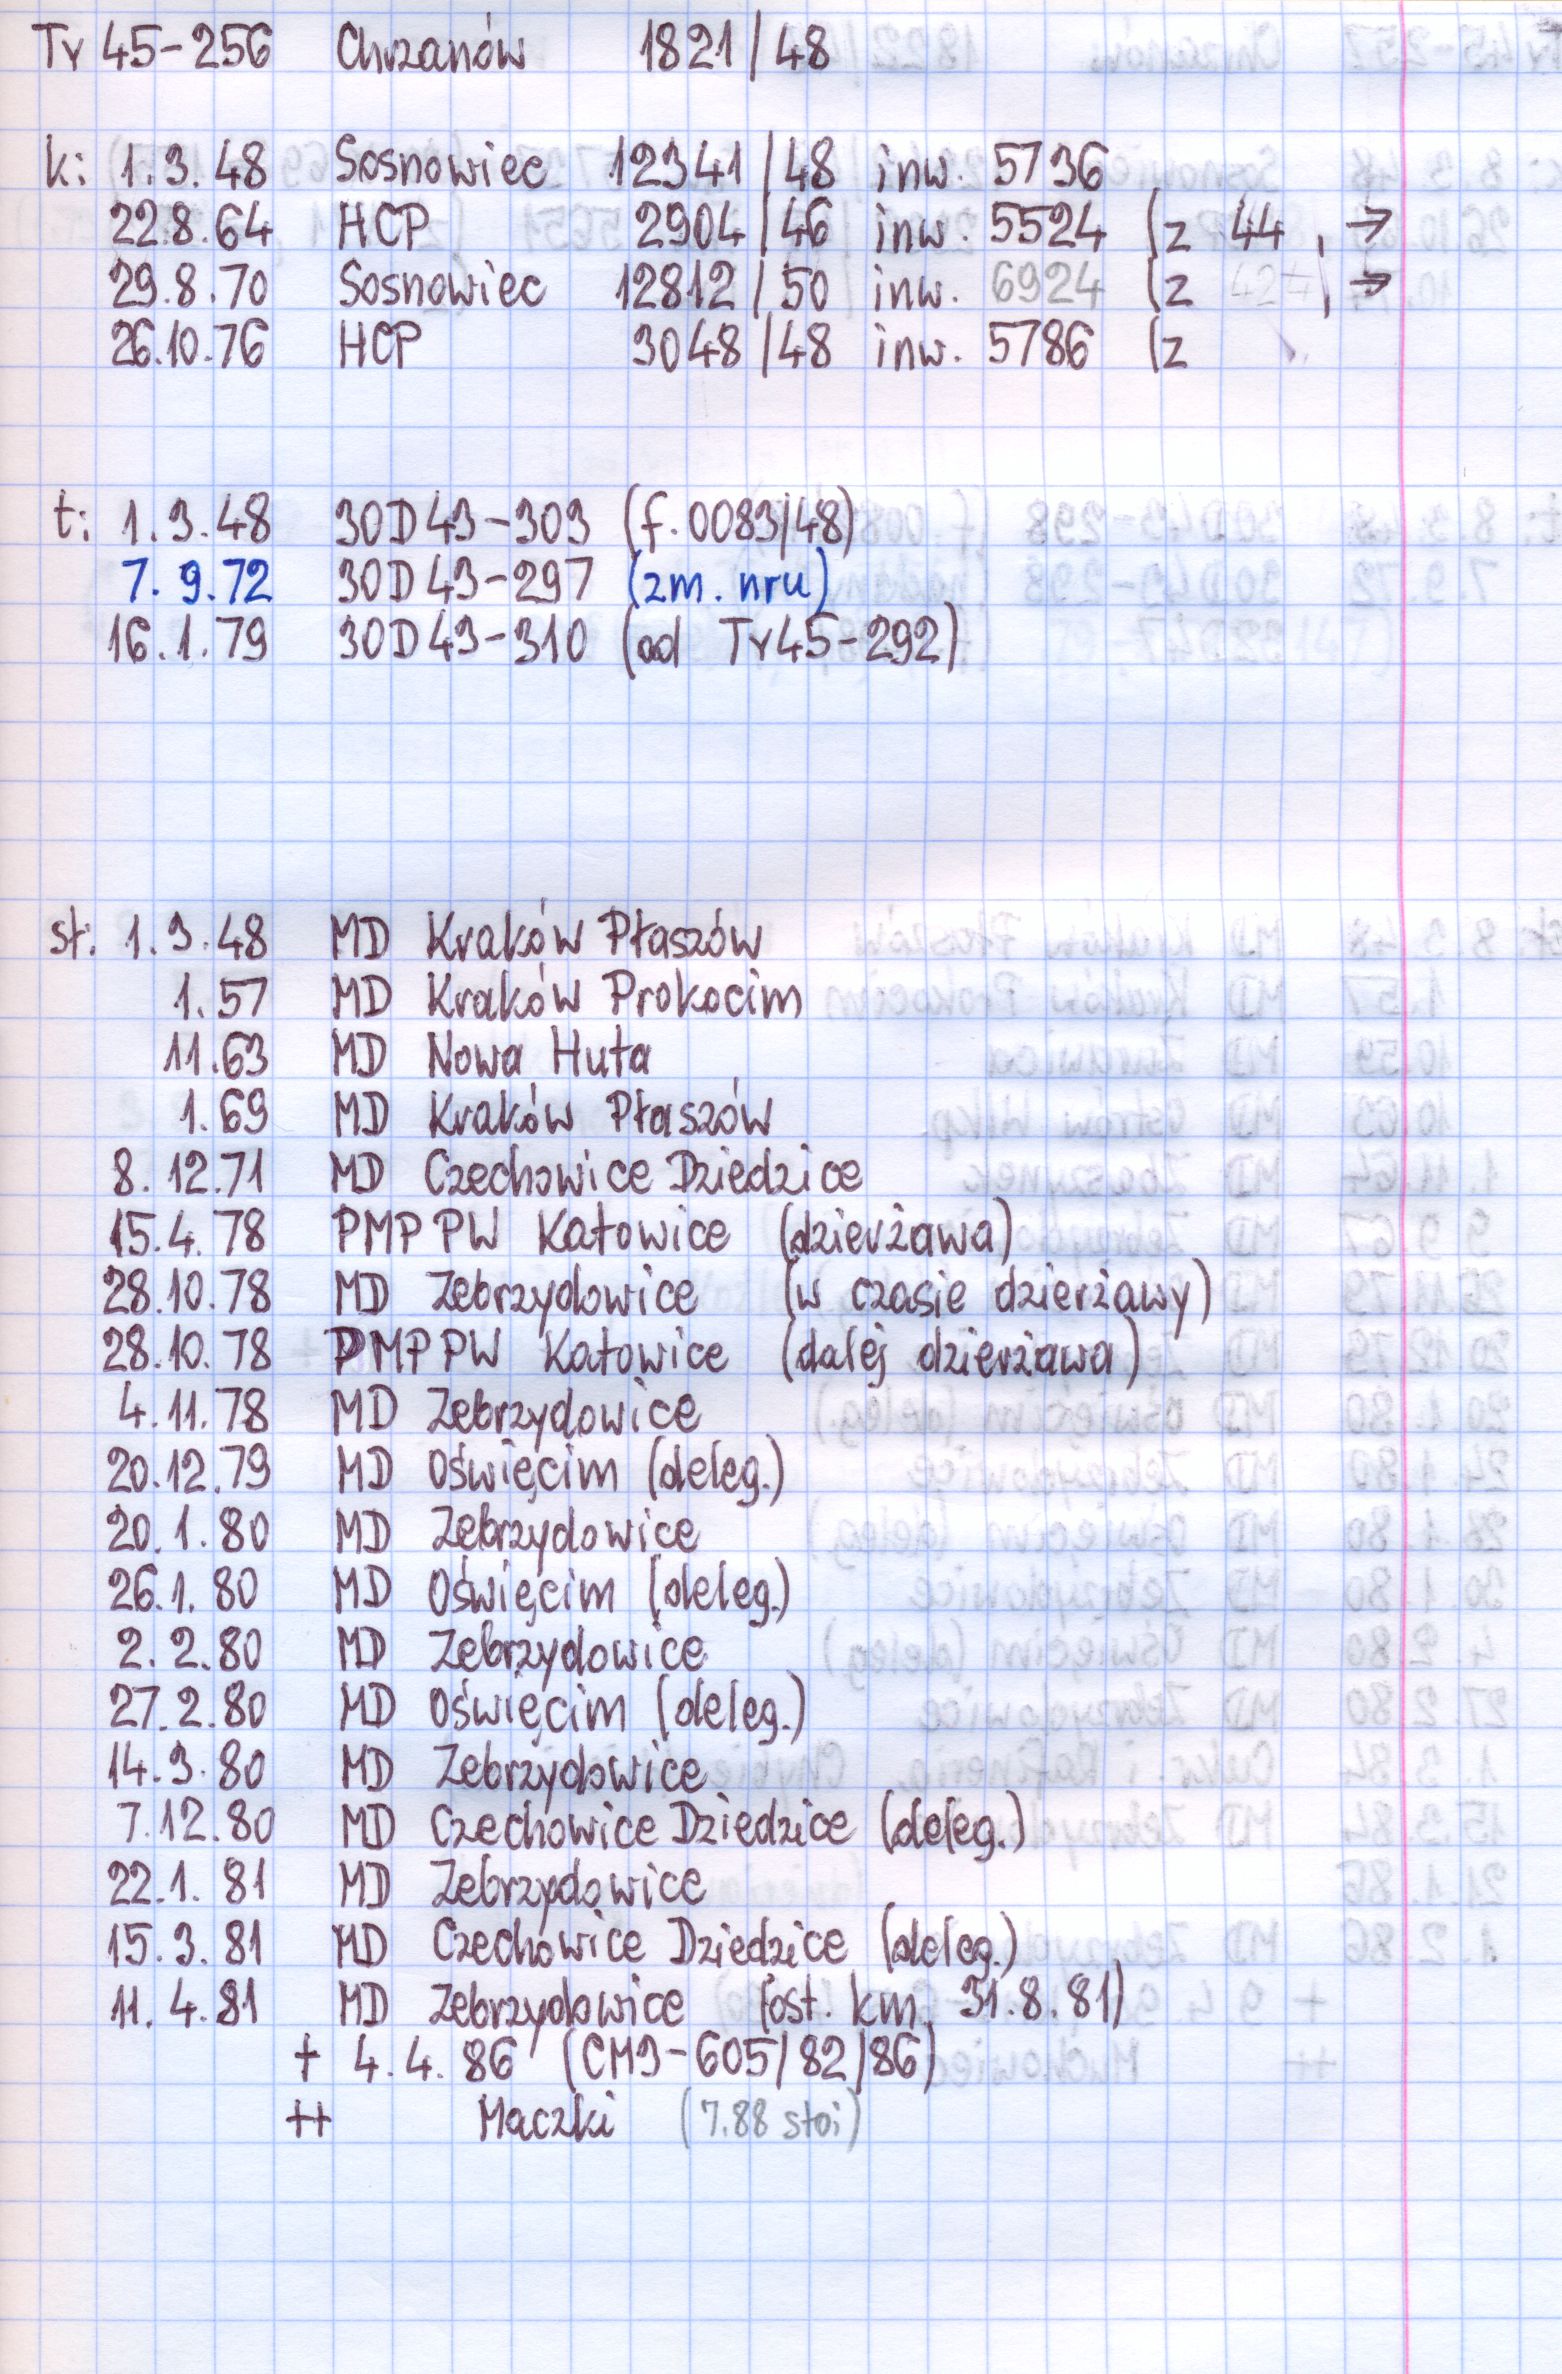 Ty 45-256 Chrzanów 1821/48
k: 1.3.48 Sosnowiec 12341/48 inw. 5736
22.8.64 HCP 2904/46 inw. 5524 (z 44, →
29.8.70 Sosnowiec 12812/50 inw. 6924 (z 424, →
26.10.76 HCP 3048/48 inw. 5786 (z
t: 1.3.48 30D43-303 (f.0083/48)
7.9.72 30D43-297 (zm. nru)
16.1.79 30D43-310 (od Ty45-292)
st: 1.3.48 MD Kraków Płaszów
1.57 MD Kraków Prokocim
11.63 MD Nowa Huta
1.69 MD Kraków Płaszów
8.12.71 MD Czechowice Dziedzice
15.4.78 PMP PW Katowice (dzierżawa)
28.10.78 MD Zebrzydowice (w czasie dzierżawy)
28.10.78 PMP PW Katowice (dalej dzierżawa)
4.11.78 MD Zebrzydowice
20.12.79 MD Oświęcim (deleg.)
20.1.80 MD Zebrzydowice
26.1.80 MD Oświęcim (deleg.)
2.2.80 MD Zebrzydowice
27.2.80 MD Oświęcim (deleg.)
14.3.80 MD Zebrzydowice
7.12.80 MD Czechowice Dziedzice (deleg.)
22.1.81 MD Zebrzydowice
15.3.81 MD Czechowice Dziedzice (deleg.)
11.4.81 MD Zebrzydowice (ost. km. 31.8.81)
+ 4.4.86 (CM3-605/82/86)
++ Maczki (7.88 stoi)